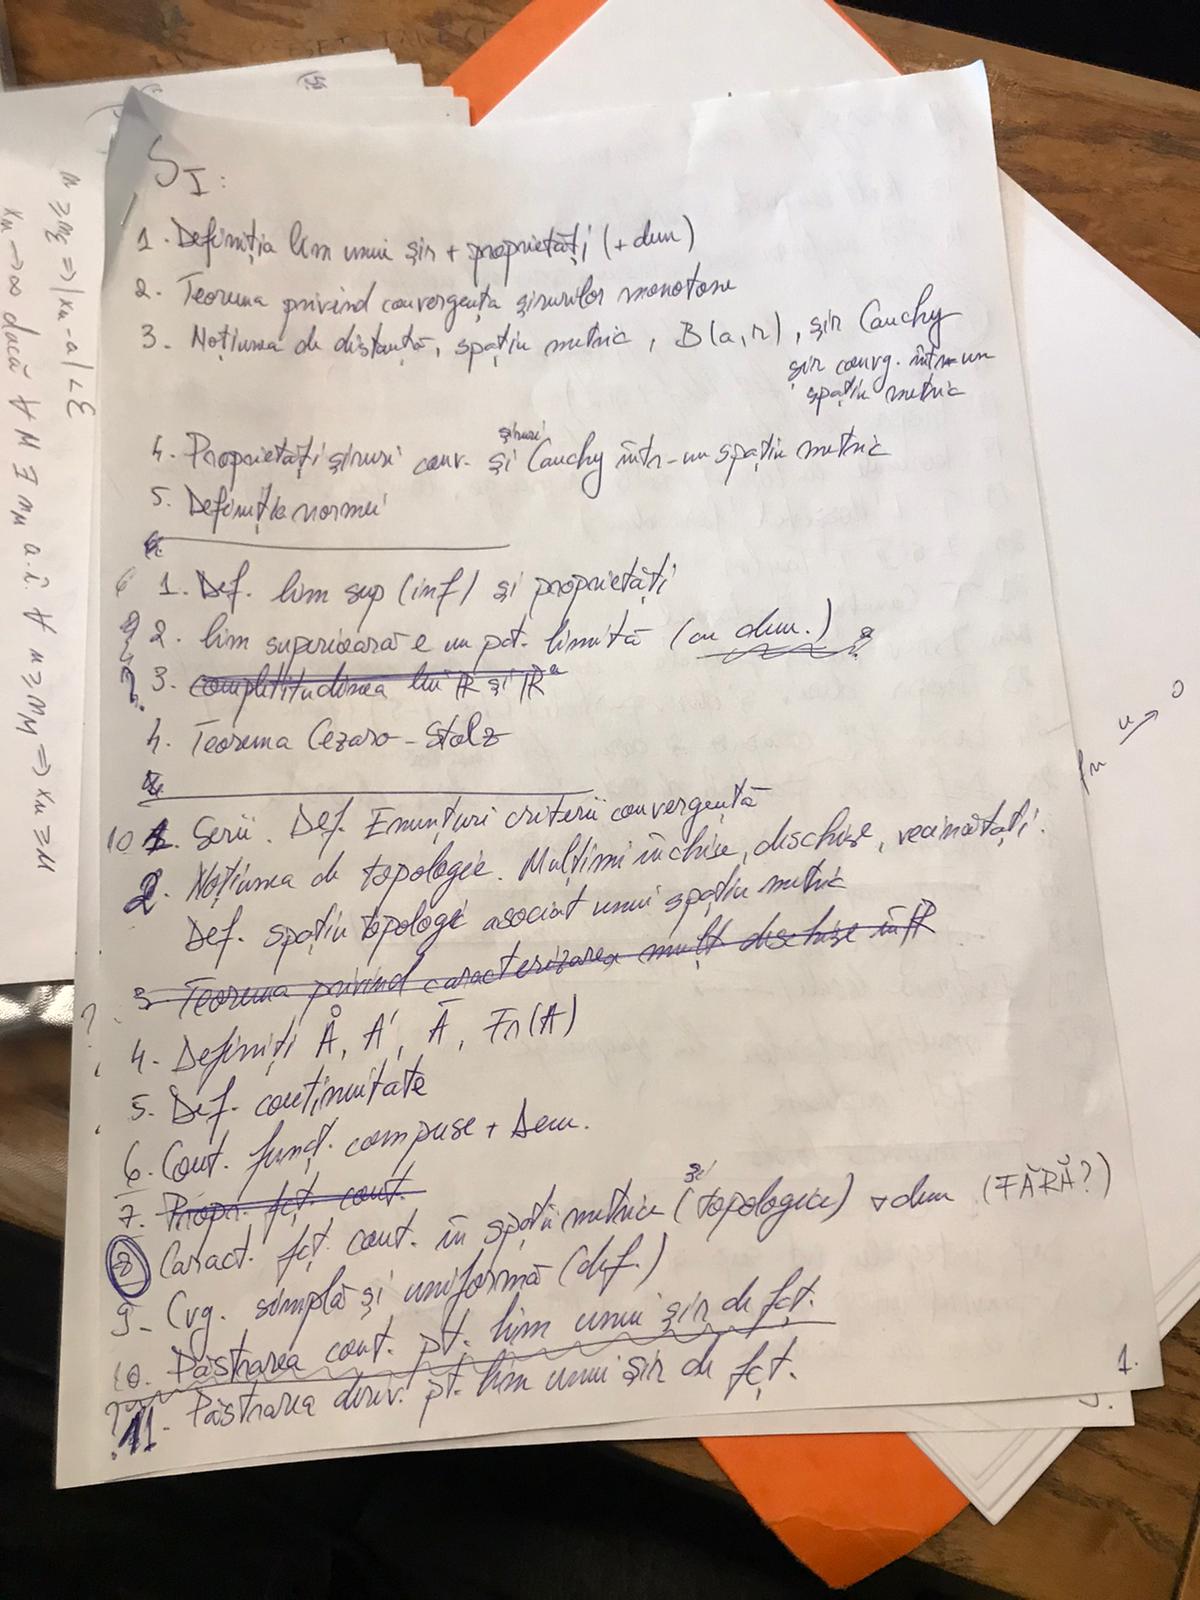 S_I:
1. Definiția lim unui șir + proprietăți (+ dem)
2. Teorema privind convergența șirurilor monotone
3. Noțiunea de distanță, spațiu metric, B(a,r), șir Cauchy
șir convg. într-un
spațiu metric
șiruri
4. Proprietăți șiruri conv. și Cauchy într-un spațiu metric
5. Definiția normei
6.
6 1. Def. lim sup (inf) și proprietăți
2. lim superioară e un pct. limită (cu dem.) ?
? 3. completitudinea lui ℝ și ℝⁿ
4. Teorema Cezaro-Stolz
10 1. Serii. Def. Enunțuri criterii convergență
2. Noțiunea de topologie. Mulțimi închise, deschise, vecinătăți.
Def. spațiu topologic asociat unui spațiu metric
3. Teorema privind caracterizarea mulț. deschise în ℝ
? 4. Definiți Å, A', Ā, Fr(A)
5. Def. continuitate
6. Cont. funcț. compuse + Dem.
7. Propr. fct. cont.
și
8 Caract. fcț. cont. în spații metrice (topologice) + dem (FĂRĂ?)
9. Cvg. simplă și uniformă (def.)
10. Păstrarea cont. pt. lim unui șir de fcț.
? 11. Păstrarea deriv. pt. lim unui șir de fcț.
1.
n ≥ nε ⇒ |xn - a| < ε
xn → ∞ dacă ∀ M ∃ nM a.î. ∀ n ≥ nM ⇒ xn ≥ M
fn u→ 0